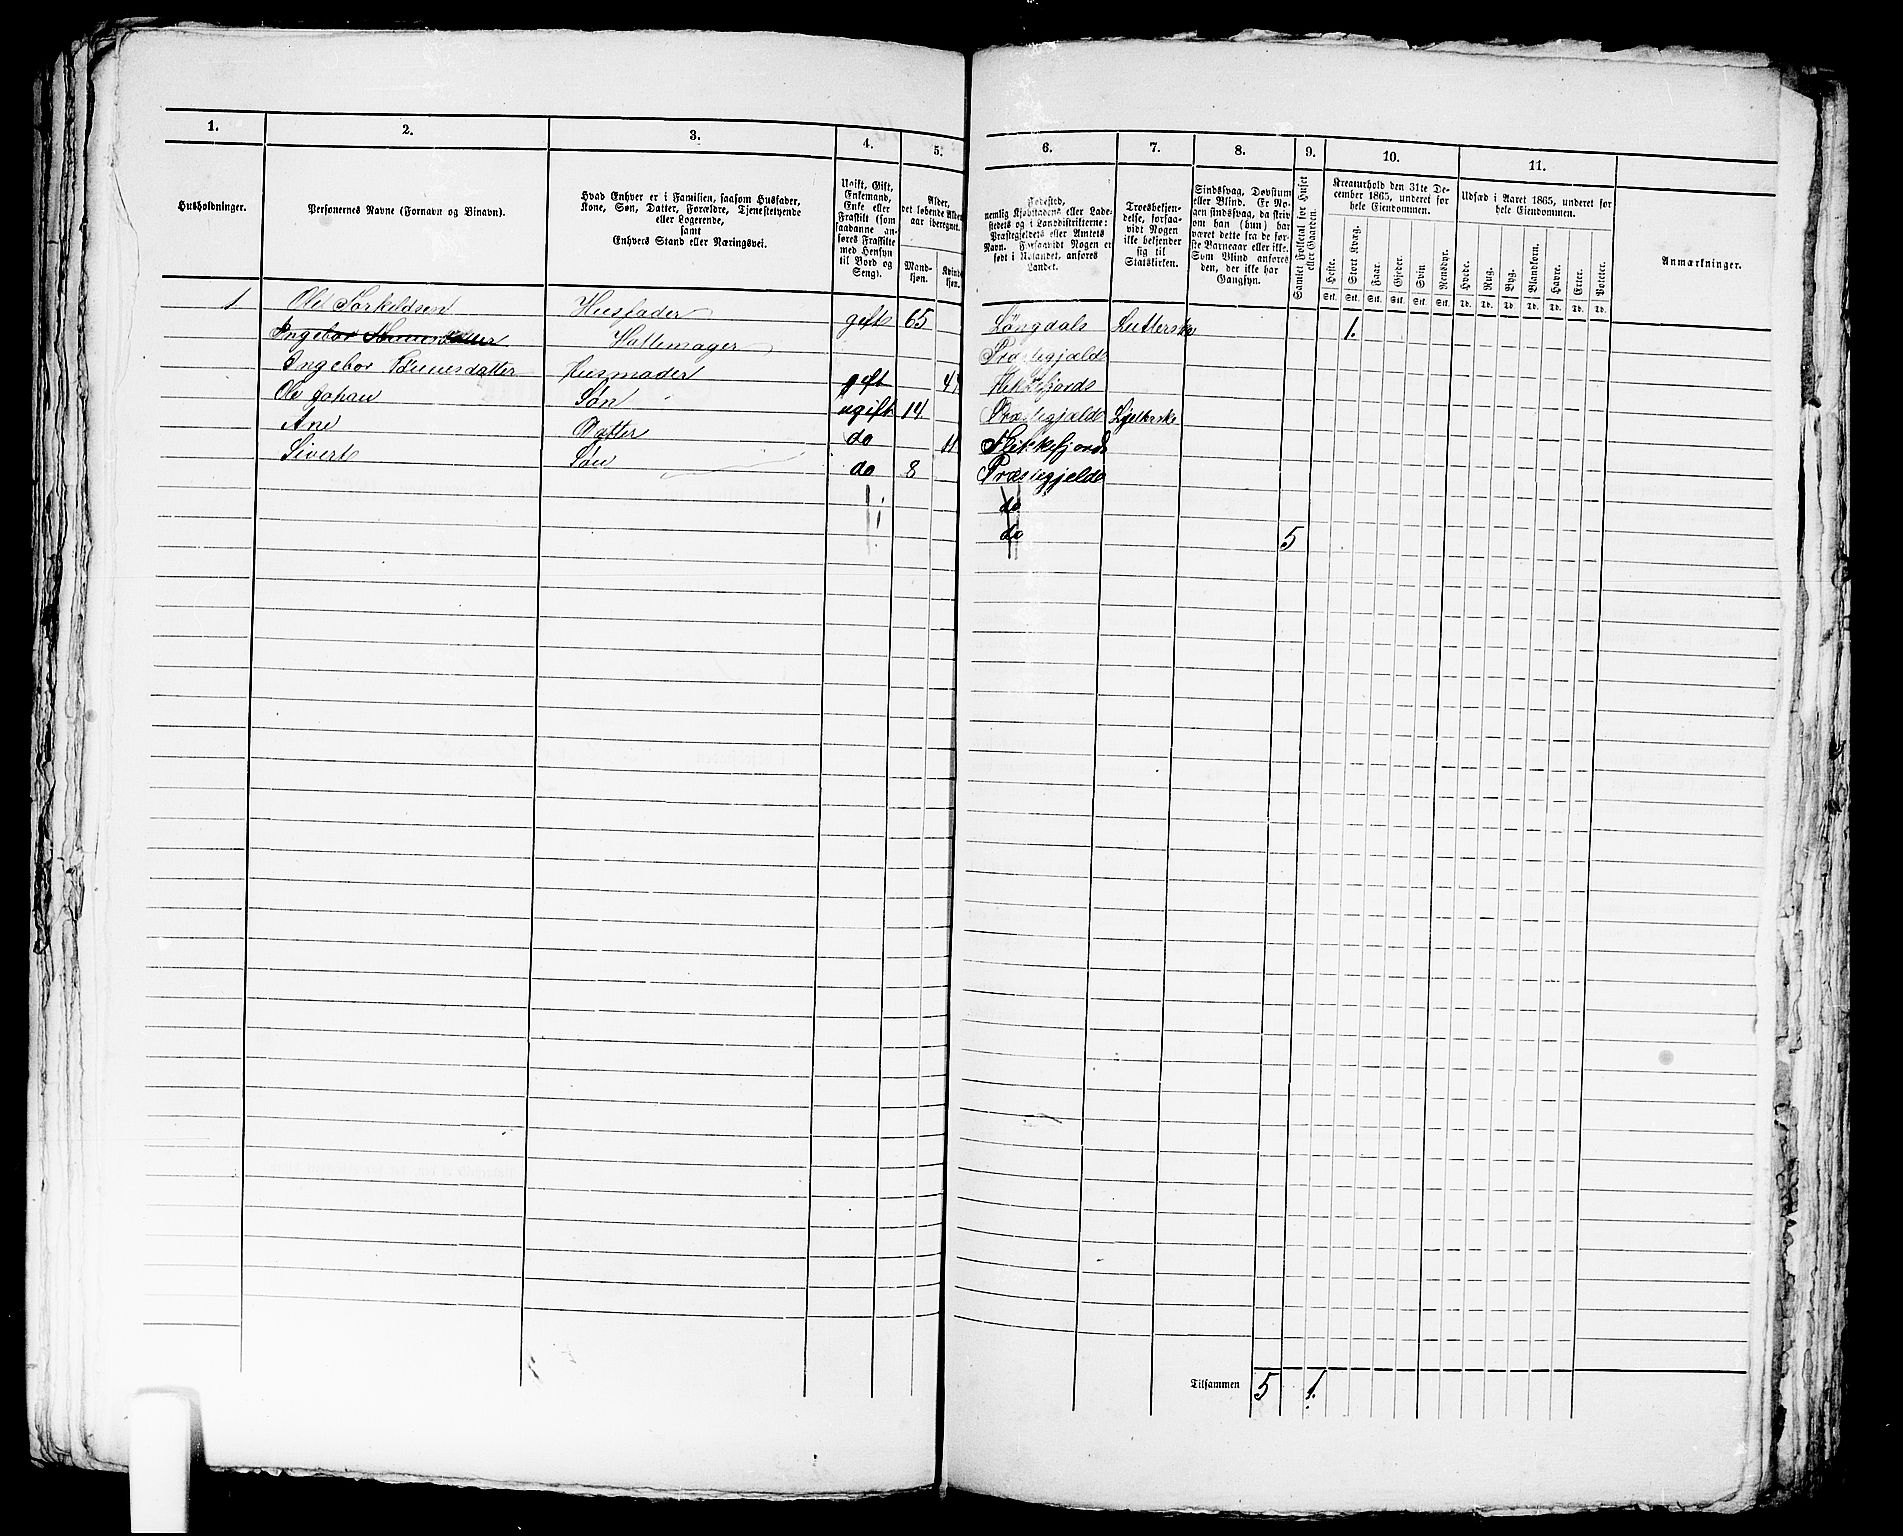 1. 2. 3. 4. 5. 6. 7. 8. 9. 10. 11.
Husholdninger.
Personernes Navne (Fornavn og Binavn).
Hvad Enhver er i Familien, saasom Husfader,
Kone, Søn, Datter, Forældre, Tjenestetyende
eller Logerende,
samt
Enhvers Stand eller Næringsvei.
Ugift, Gift,
Enkemand,
Enke eller
Fraskilt (som
saadanne an-
føres Fraskilte
med Hensyn
til Bord og
Seng).
Alder,
det løbende Alders-
aar iberegnet.
Mand-
kjøn.
Kvinde-
kjøn.
Fødested,
nemlig Kjøbstadens eller Lade-
stedets og i Landdistrikterne:
Præstegjeldets eller Amtets
Navn. Forsaavidt Nogen er
født i Udlandet, anføres
Landet.
Troesbekjen-
delse, forsaa-
vidt Nogen
ikke bekjender
sig til
Statskirken.
Sindssvag, Døvstum
eller Blind. Er No-
gen sindssvag, da skriv
om han (hun) har
været dette fra de før-
ste Barneaar eller ikke.
Som Blind anføres
den, der ikke har
Gangsyn.
Samlet Folketal for Huset
eller Gaarden.
Kreaturhold den 31te De-
cember 1865, underet for
hele Eiendommen.
Heste. Stort Kvæg. Faar. Gjeder. Svin Rensdyr.
Stk. Stk. Stk. Stk. Stk. Stk.
Udsæd i Aaret 1865, underet for
hele Eiendommen.
Hvede. Rug. Byg. Blandkorn. Havre. Erter. Poteter.
Td. Td. Td. Td. Td. Td. Td.
Anmærkninger.
1 Ole Torkildsen Husfader gift 65 Løngdals Lutterske 1.
Ingebor Hattemager Præstegjælds
Ingebor Tønnesdatter Husmader gift Flekkefjords
Ole Johan Søn ugift 14 Præstegjælds
Ane Datter do 11 Flekkefjords
Sivert Søn do 8 Præstegjelds
do
do 5
Tilsammen 5 1.